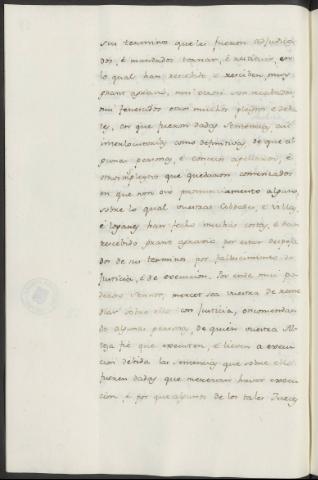 sus terminos que lei fueron adjudica
dos, é mandados tornar, é restituir, en
lo qual han recebido é reciben muy
grant agravio, nin ocasi son acabados
nin fenecidos otros muchos pleytos é deba
tes, en que fueron dadas sentencias, asi
interlocutorias como definitivas, de que al
gunas personas, é concejos apellaron, é
otros pleytos que quedaron comenzados
en que non ovo pronunciamiento alguno,
sobre lo qual vuestras Cibdades, é villas,
é logares han fecho muchas costas, é han
recebido grant agravio por estar despoja
dos de sus terminos por fallecimiento de
Justicia, é de execucion. Por ende muy po
deroso Señor, merced sea vuestra de reme
diar sobre ello con Justicia, encomendan
do algunas personas, de quien vuestra Al
teza fie que executen, é lieven a execu
cion debida las sentencias que sobre ello
fueron dadas que merezcan haver execu
cion, é por que algunos de los tales Jueces